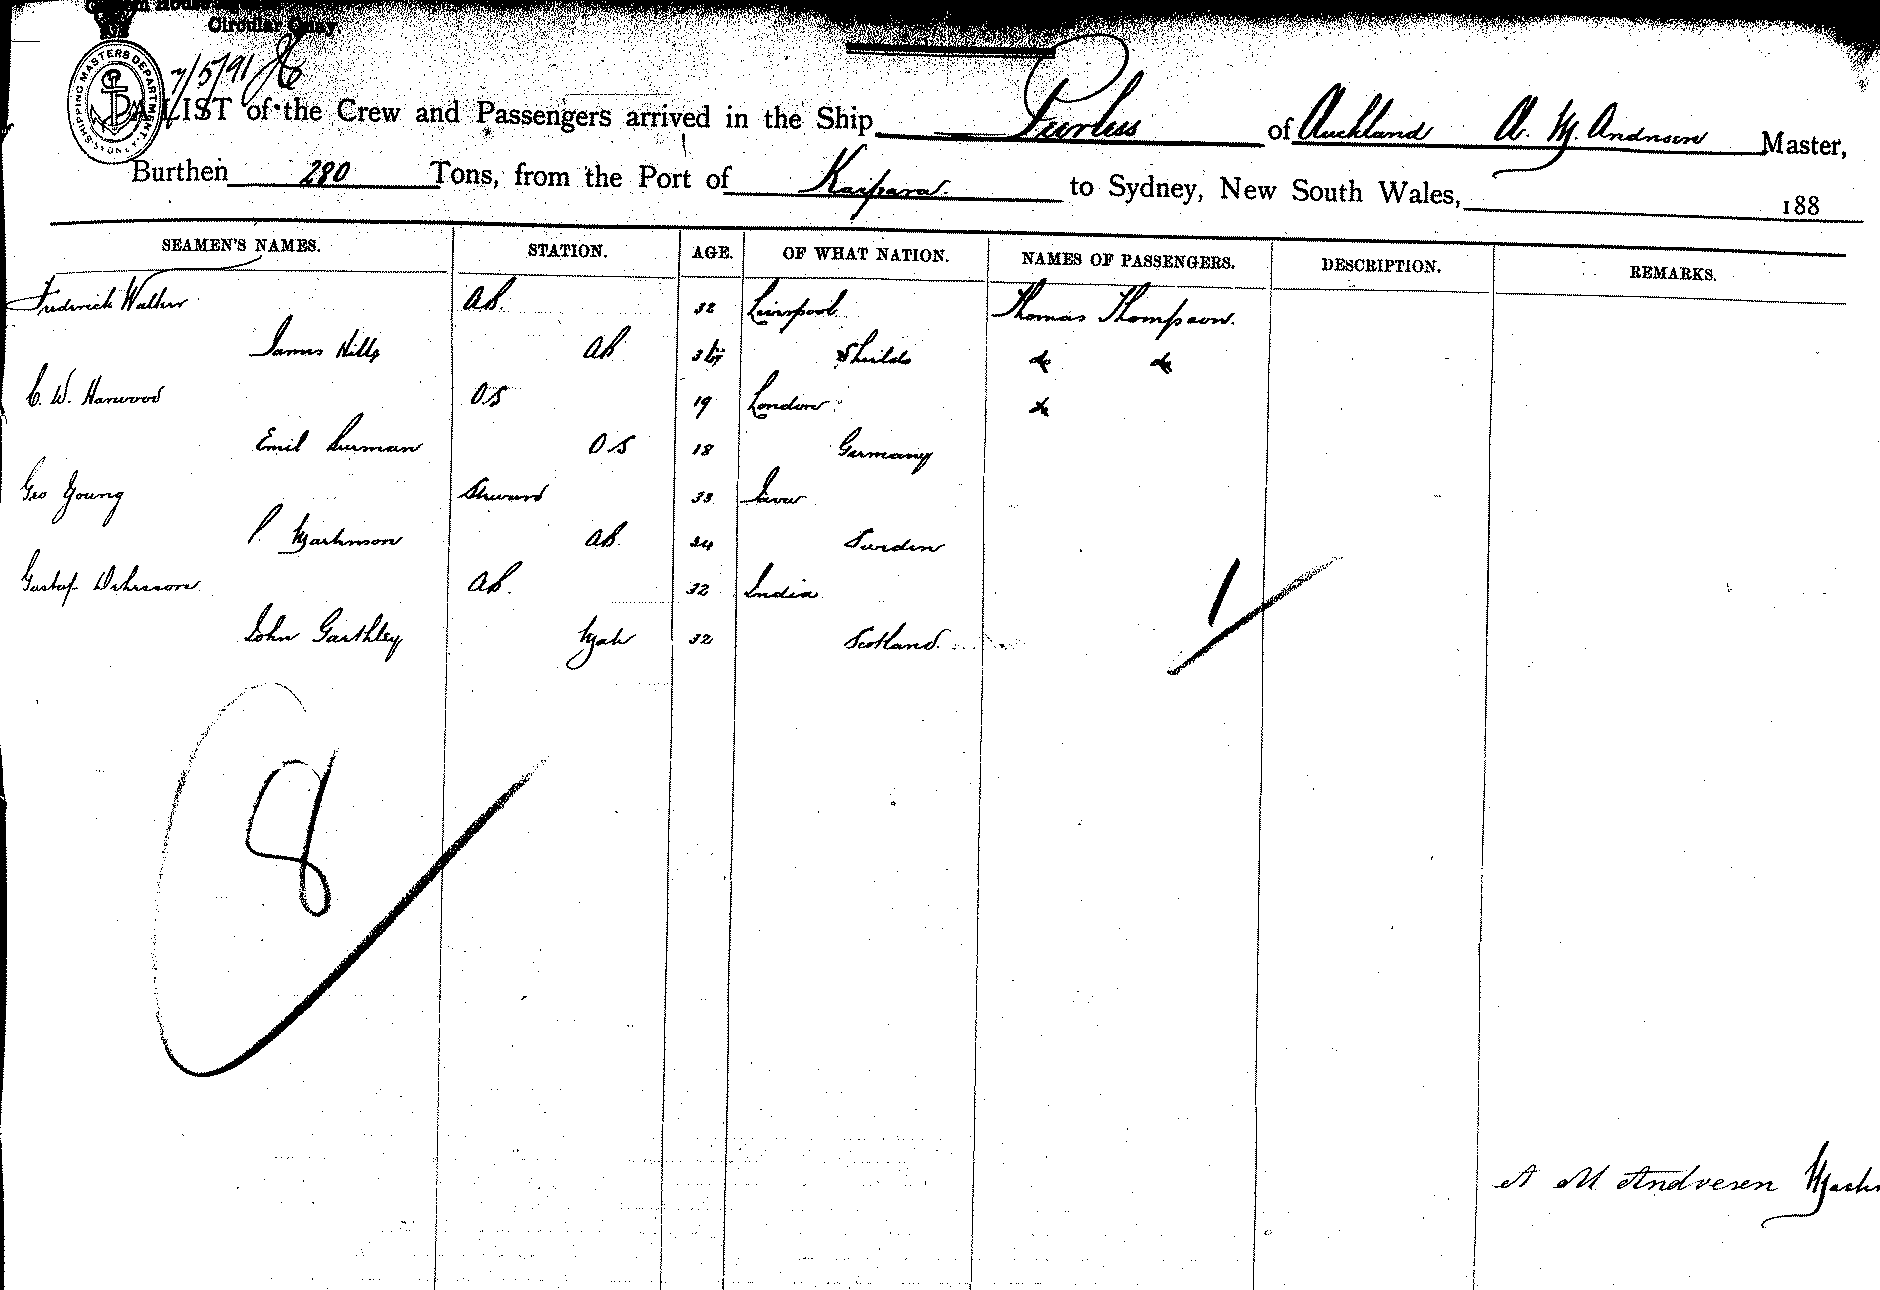 Circular Quay
SHIPPING MASTERS DEPARTMENT
7/5/91
A LIST of the Crew and Passengers arrived in the Ship Peerless of Auckland A. M. Andresen Master,
Burthen 280 Tons, from the Port of Kaipara to Sydney, New South Wales, 188
SEAMEN'S NAMES. STATION. AGE. OF WHAT NATION. NAMES OF PASSENGERS. DESCRIPTION. REMARKS.
Frederick Walker AB. 32 Liverpool Thomas Thompson.
James Hills AB Shields
C. W. Harwood OS 19 London
Emil OS 18 Germany
Geo Young Steward 33 Java
P. Martinson AB 24 Sweden
Gustaf AB. 32 India
John Garthley Mate 32 Scotland.
1
8
A M Andresen Master